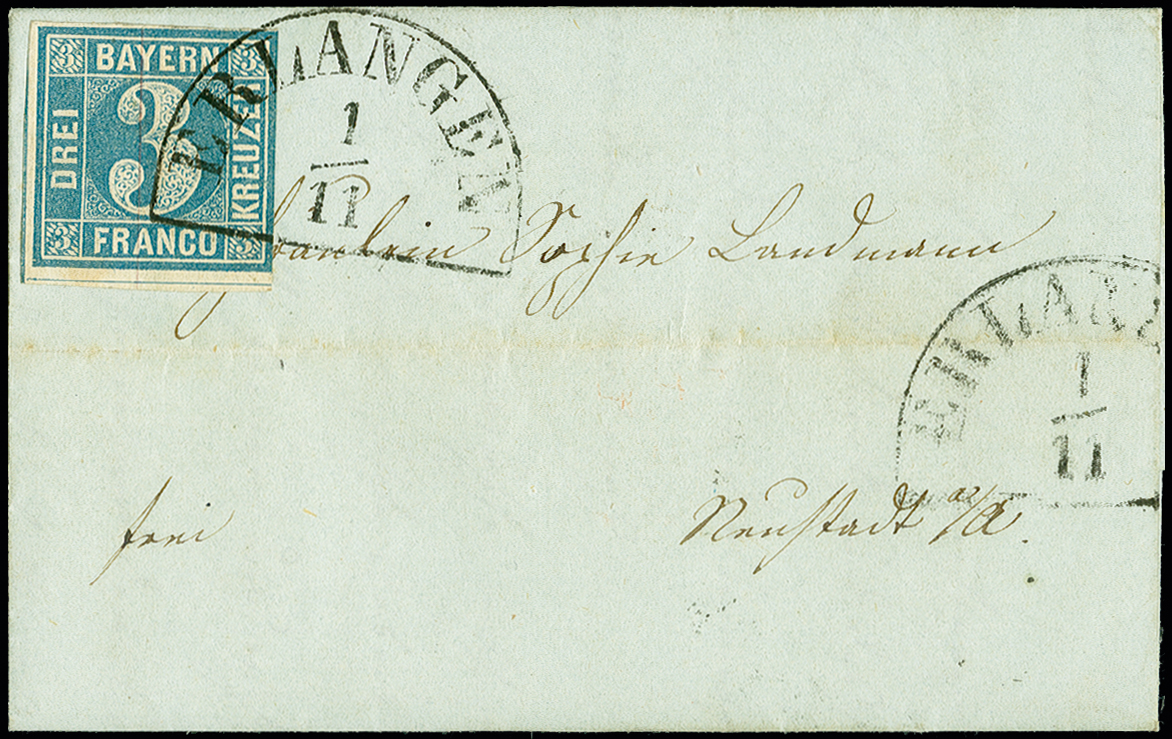 3 BAYERN 3
DREI 3 KREUZER
3 FRANCO 3
ERLANGEN
1
11
Fräulein Sophie Landmann
ERLAN
1
11
frei
Neustadt a/A.